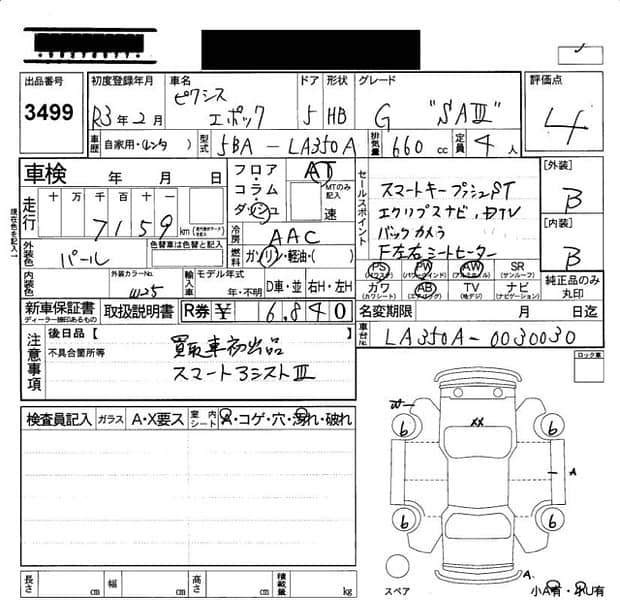 出品番号 初度登録年月 車名 ドア 形状 グレード 評価点
3499 R3年2月 ピクシス エポック 5 HB G "SAⅢ" 4
車歴 自家用・(レンタ ) 型式 5BA-LA350A 排気量 660 cc 定員 4 人
車検 年 月 日 フロア・コラム・ダッシュ AT MTのみ記入 速
セールスポイント スマートキープッシュST
エクリプスナビ,DTV
バックカメラ
F左右シートヒーター
[外装] B
[内装] B
現在色を記入→
走行 十 万 千 百 十 一
7159 km
冷房 AAC
外装色 パール 色替車は色替と記入
燃料 ガソリン・軽油・( )
PS (パワステ) PW (パワーウインド) AW (アルミホイル) SR (サンルーフ) 純正品のみ丸印
カワ (カワシート) AB (エアバッグ) TV (地デジ) ナビ (ナビゲーション)
内装色 外装カラーNo. W25 輸入車 モデル年式 年・不明 D車・並 右H・左H
新車保証書 ディーラー捺印あるもの 取扱説明書 R券¥ 6,840 名変期限 月 日迄
注意事項 後日品【 】
不具合箇所等 買取車初出品
スマートアシストⅢ
車台No. LA350A-0030030
ロック車
検査員記入 ガラス A・X要ス 室内シート A・コゲ・穴・濡れ・破れ
W
XX
6 6
A
6 6
A
長さ cm 幅 cm 高さ cm 積載量 kg
スペア 小A有・小U有